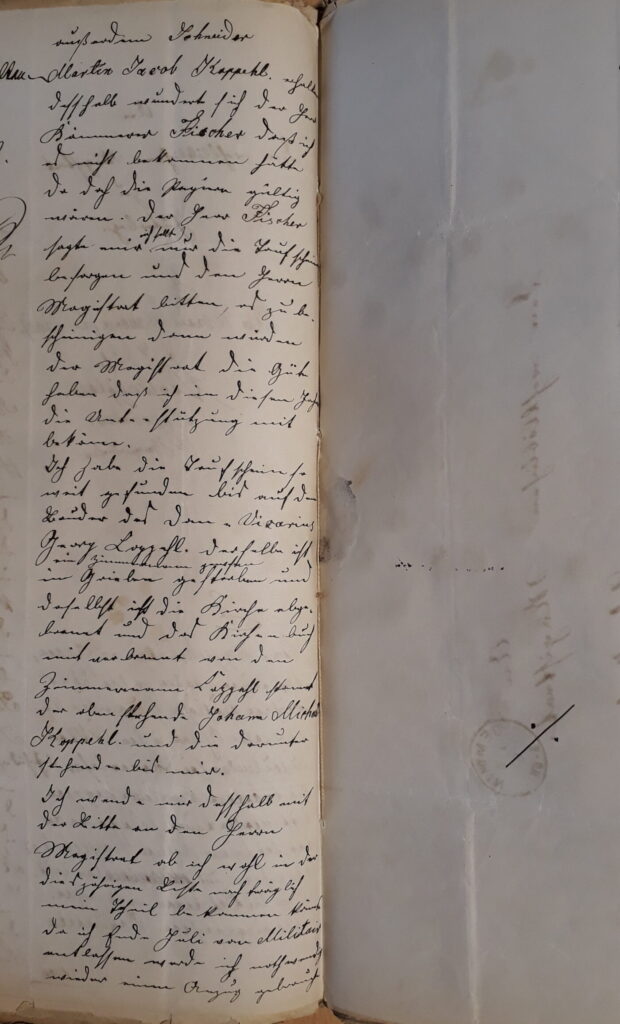 außerdem Schneider
Martin Jacob Koppehl. erhalten
desshalb wundert sich der Herr
Kämmerer Fischer daß ich
es nicht bekommen hätte
da doch die Papiere gültig
wären. Der Herr Fischer
sagte mir ich sollte nur die Taufscheine
besorgen und den Herrn
Magistrat bitten, es zu be-
scheinigen dann würden
der Magistrat die Güte
haben daß ich in diesen Jahr
die Unterstützung mit
bekäme.
Ich habe die Taufscheine so
weit gefunden bis auf den
Bruder des Dom-Vicarius
Georg Koppehl. derselbe ist
ein Zimmermann
in Grieben gestorben und
daselbst ist die Kirche abge-
brannt und das Kirchenbuch
mit verbrannt von den
Zimmermann Koppehl stammt
der obenstehende Johann Michael
Koppehl. und die darunter
stehenden bis mir.
Ich wende mir desshalb mit
der Bitte an den Herrn
Magistrat ob ich wohl in der
diesjährigen Liste nachträglich
mein Theil bekommen könnte
da ich Ende Juli vom Militair
entlassen werde ich nothwendig
wieder einen Anzug gebrauche